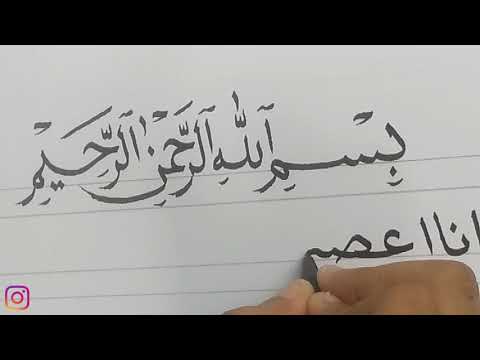 بِسْمِ اللّٰهِ الرَّحْمٰنِ الرَّحِيْمِ
انا